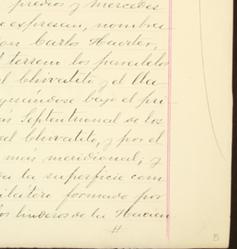 predios y mercedes
e expresan, nombra
on Carlos Harter,
terreno los paralelos
el Chivatito y el
bajo el pri
Septentrional de los
el Chivatito, y por el
más meridional, y
la superficie com
formado por
los linderos de la
#